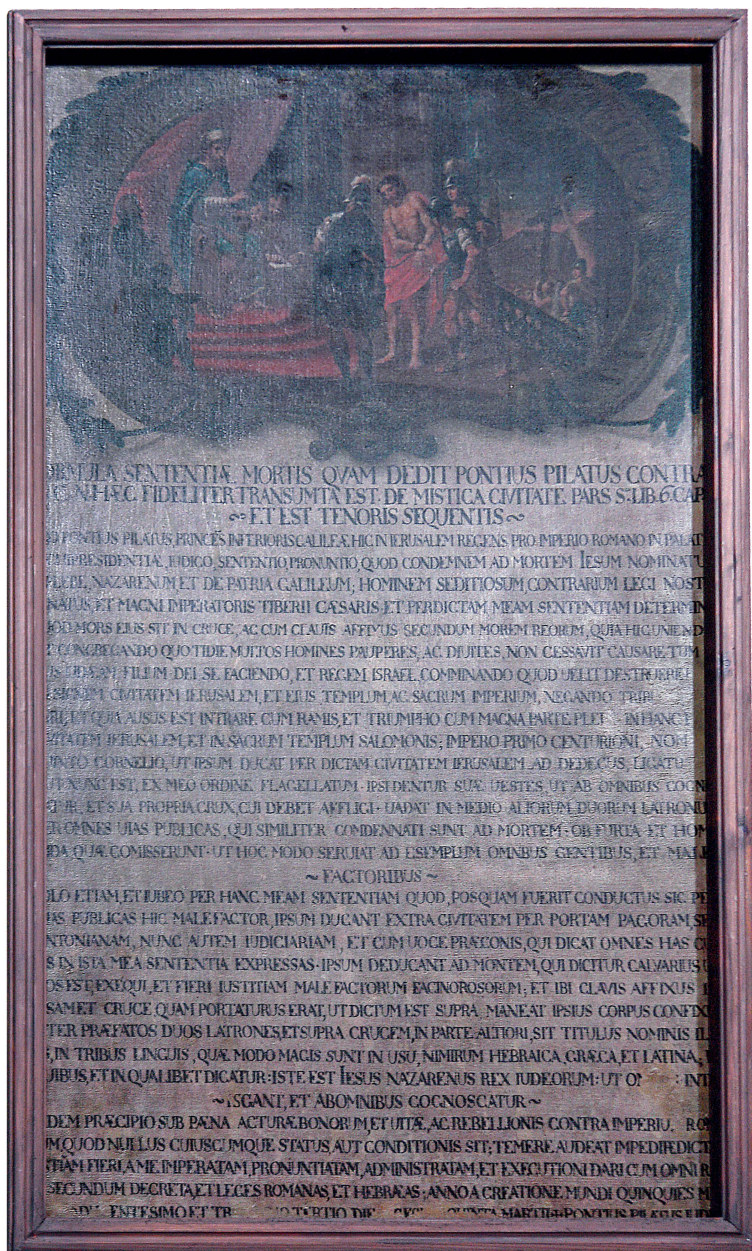 SENTENTIÆ MORTIS QVAM DEDIT PONTIUS PILATUS CONTRA
HÆC FIDELITER TRANSUMTA EST DE MISTICA CIVITATE PARS LIB. 6. CAP
~ET EST TENORIS SEQUENTIS~
PONTIUS PILATUS, PRINCES INFERIORIS GALILEÆ, HIC IN IERUSALEM REGENS, PRO IMPERIO ROMANO IN PALAT
PRESIDENTIÆ, IUDICO, SENTENTIO PRONUNTIO, QUOD CONDEMNEM AD MORTEM IESUM NOMINATU
PLEBE, NAZARENUM, ET DE PATRIA GALILEUM; HOMINEM SEDITIOSUM, CONTRARIUM LEGI NOST
NATUS, ET MAGNI IMPERATORIS TIBERII CÆSARIS, ET PERDICTAM MEAM SENTENTIAM DETERMIN
MORS EIUS SIT IN CRUCE, AC CUM CLAUIS AFFIXUS SECUNDUM MOREM REORUM, QUIA HIC UNIEND
CONGREGANDO QUOTIDIE MULTOS HOMINES PAUPERES, AC DIUITES, NON CESSAVIT CAUSARE TUM
FILIUM DEI SE FACIENDO, ET REGEM ISRAEL, COMMINANDO QUOD UELIT DESTRUERE
CIVITATEM IERUSALEM, ET EIUS TEMPLUM, AC SACRUM IMPERIUM, NEGANDO TRIBU
ET QUIA AUSUS EST INTRARE CUM RAMIS, ET TRIUMPHO CUM MAGNA PARTE PLEB IN HANC
IERUSALEM, ET IN SACRUM TEMPLUM SALOMONIS; IMPERO PRIMO CENTURIONI, NOM
CORNELIO, UT IPSUM DUCAT PER DICTAM CIVITATEM IERUSALEM AD DEDECUS, LIGATU
NUNC EST, EX MEO ORDINE FLAGELLATUM. IPSI DENTUR SUÆ UESTES, UT AB OMNIBUS COGN
ET SUA PROPRIA CRUX, CUI DEBET AFFLIGI. UADAT IN MEDIO ALIORUM DUORUM LATRONU
OMNES UIAS PUBLICAS, QUI SIMILITER CONDENNATI SUNT AD MORTEM. OB FURTA ET HOM
DA QUÆ COMISSERUNT. UT HOC MODO SERUIAT AD ESEMPLUM OMNBUS GENTIBUS, ET MALE
~FACTORIBUS~
ETIAM, ET IUBEO PER HANC MEAM SENTENTIAM QUOD, POSQUAM FUERIT CONDUCTUS SIC PE
AS PUBLICAS HIC MALEFACTOR, IPSUM DUCANT EXTRA CIVITATEM PER PORTAM PAGORAM, SE
NTONIANAM, NUNC AUTEM IUDICIARIAM, ET CUM UOCE PRÆCONIS, QUI DICAT OMNES HAS CU
S IN ISTA MEA SENTENTIA EXPRESSAS. IPSUM DEDUCANT AD MONTEM, QUI DICITUR CALVARIUS U
OS EST, EXEQUI, ET FIERI IUSTITIAM MALEFACTORUM FACINOROSORUM; ET IBI CLAVIS AFFIXUS
SAMET CRUCE QUAM PORTATURUS ERAT, UT DICTUM EST SUPRA, MANEAT IPSIUS CORPUS CONFIXU
TER PRÆFATOS DUOS LATRONES, ET SUPRA CRUCEM, IN PARTE ALTIORI, SIT TITULUS NOMINIS IL
IN TRIBUS LINGUIS, QUÆ MODO MAGIS SUNT IN USU, NIMIRUM HEBRAICA, GRÆCA, ET LATINA;
UIBUS, ET IN QUALIBET DICATUR: ISTE EST IESUS NAZARENUS REX IUDEORUM: UT INT
SCANT, ET ABOMNIBUS COGNOSCATUR~
DEM PRÆCIPIO SUB PÆNA ACTURÆ BONORUM, ET UITÆ, AC REBELLIONIS CONTRA IMPERIU RO
M QUOD NULLUS CUIUSCUMQUE STATUS, AUT CONDITIONIS SIT; TEMERE AUDEAT IMPEDIRE DICT
TIAM FIERI, A ME IMPERATAM, PRONUNTIATAM, ADMINISTRATAM, ET EXECUTIONI DARI CUM OMNI R
SECUNDUM DECRETA, ET LEGES ROMANAS, ET HEBRÆAS: ANNO A CREATIONE MUNDI QUINQUIES M
ENTESIMO ET TERTIO DIE QUINTA MARTII: PONTIUS PILATUS IUD